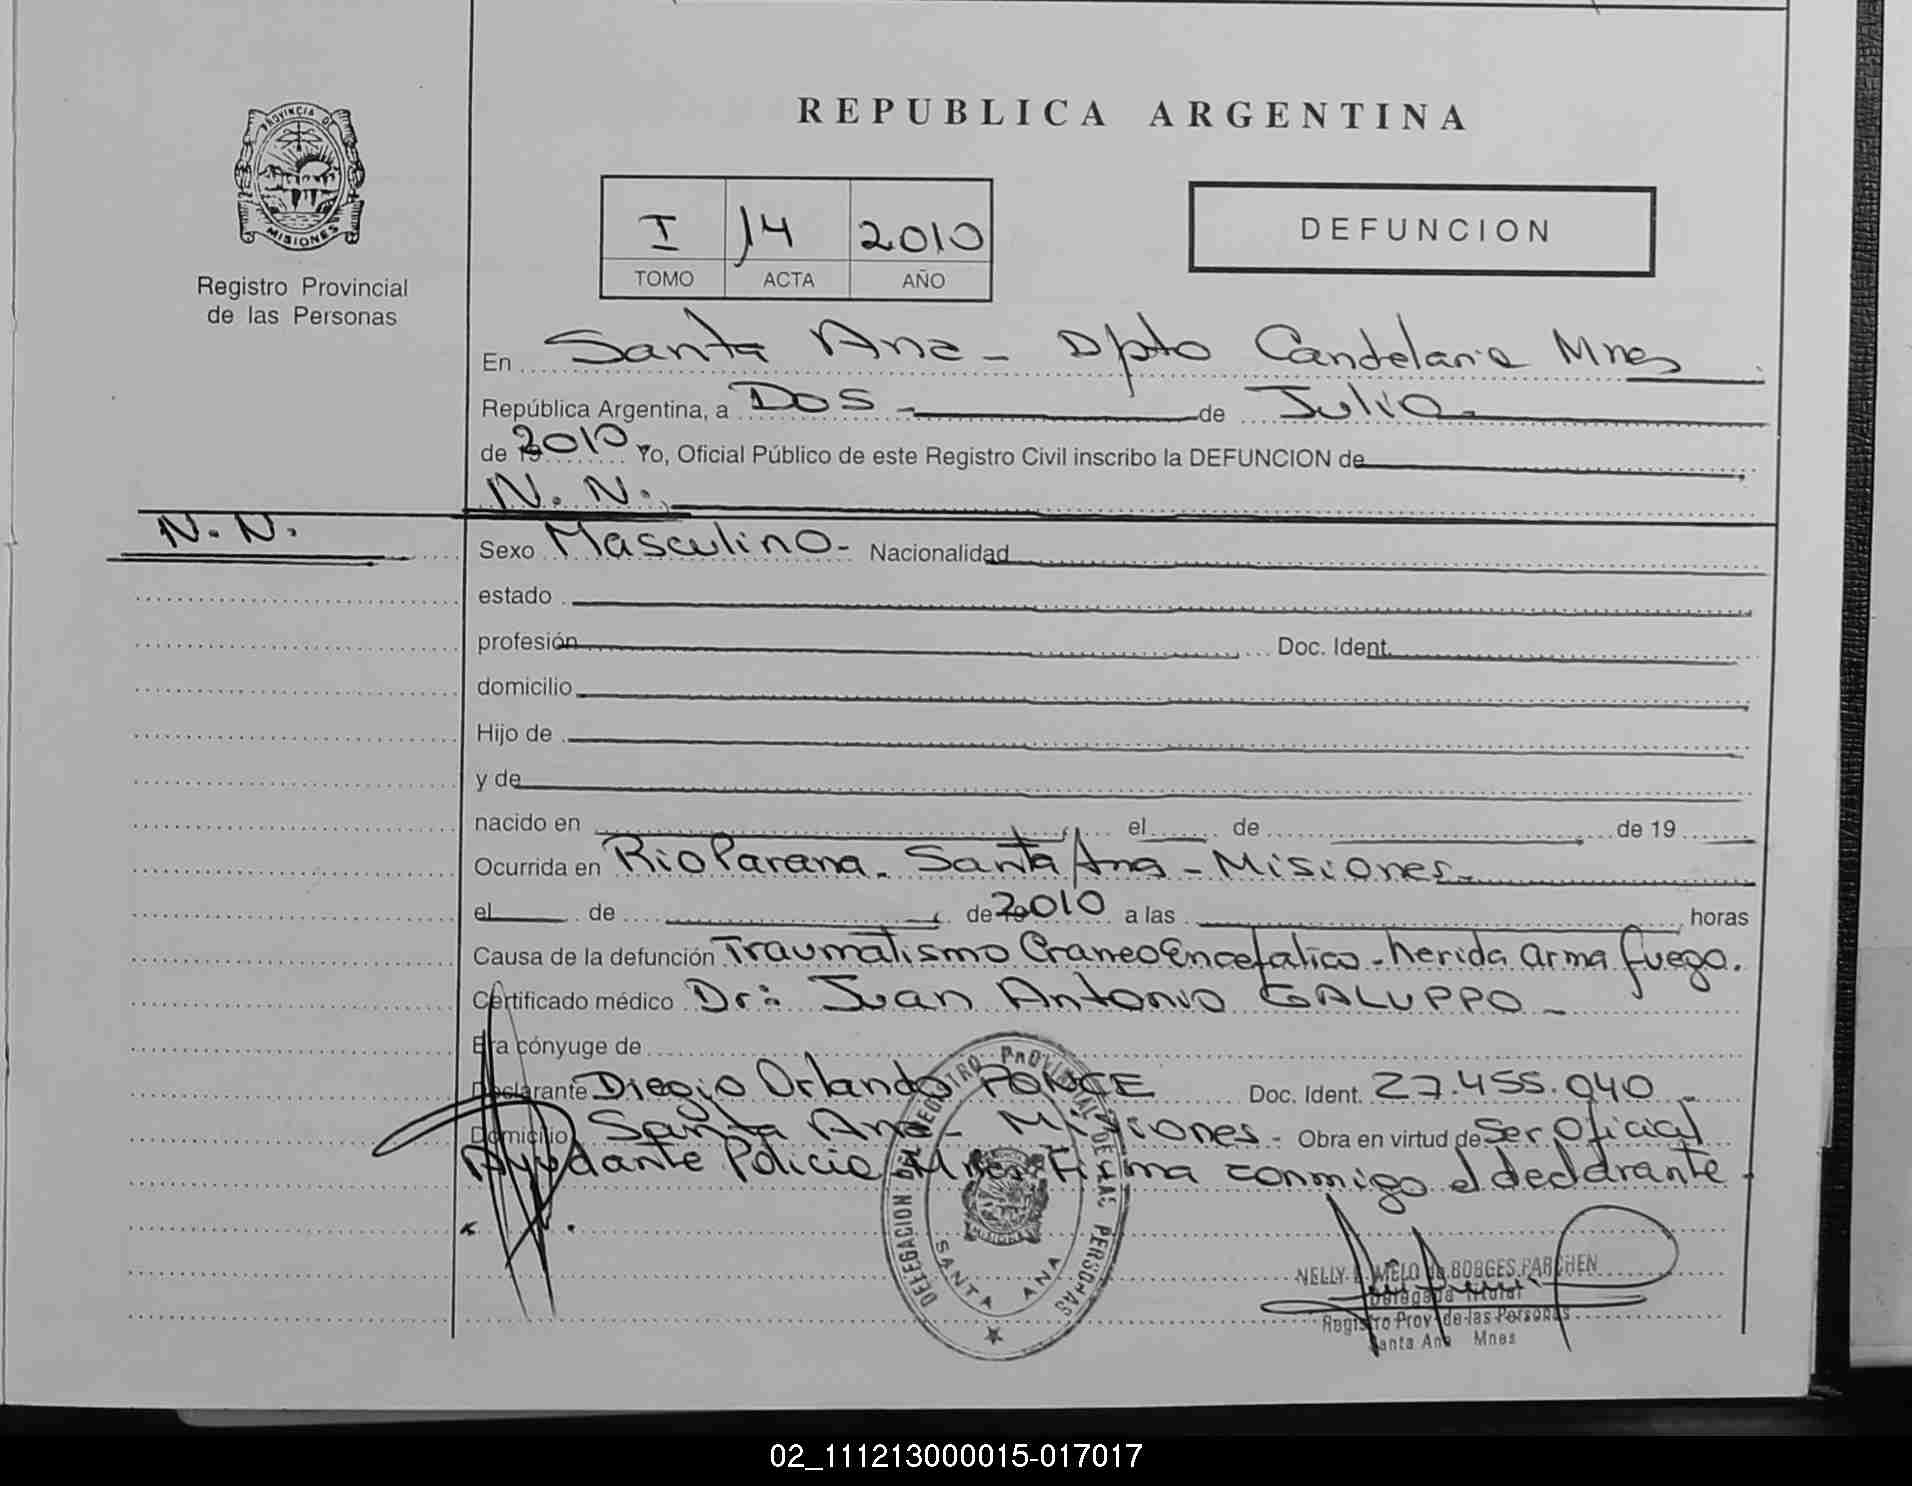 REPUBLICA ARGENTINA
PROVINCIA DE
MISIONES
Registro Provincial
de las Personas
I 14 2010
TOMO ACTA AÑO
DEFUNCION
En Santa Ana - Dpto Candelaria Mnes
República Argentina, a Dos - de Julio -
de 2010 Yo, Oficial Público de este Registro Civil inscribo la DEFUNCION de
N. N.
N. N.
Sexo Masculino - Nacionalidad
estado
profesión Doc. Ident.
domicilio
Hijo de
y de
nacido en el de de 19
Ocurrida en Rio Parana - Santa Ana - Misiones -
el de de 2010 a las horas
Causa de la defunción Traumatismo CraneoEncefalico - herida arma fuego.
Certificado médico Dr: Juan Antonio GALUPPO -
Era cónyuge de
Declarante Diego Orlando PONCE Doc. Ident. 27.455.040 -
Domicilio Santa Ana - Misiones - Obra en virtud de Ser Oficial
Ayudante Policia Mnes Firma conmigo el declarante -
DELEGACION DEL REGISTRO PROVINCIAL DE LAS PERSONAS
SANTA ANA
NELLY MELO de BORGES PARCHEN
Delegada Titular
Registro Prov. de las Personas
Santa Ana Mnes
02_111213000015-017017